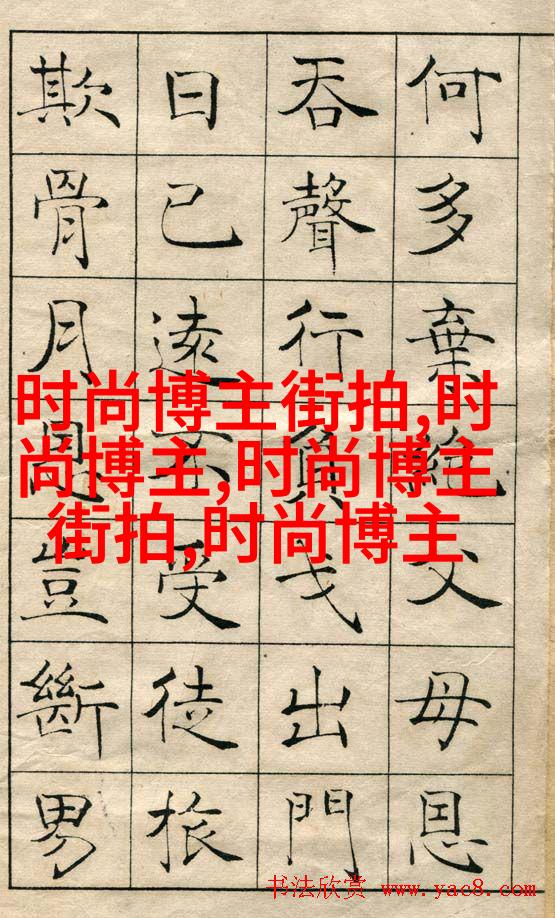 何多棄絕父母恩
吞聲行負戈出門
日已遠不受徒旅
欺骨月恩豈斷男
时尚博主街拍,时
尚博主,时尚博主
街拍,时尚博主
书法欣赏 www.yac8.com